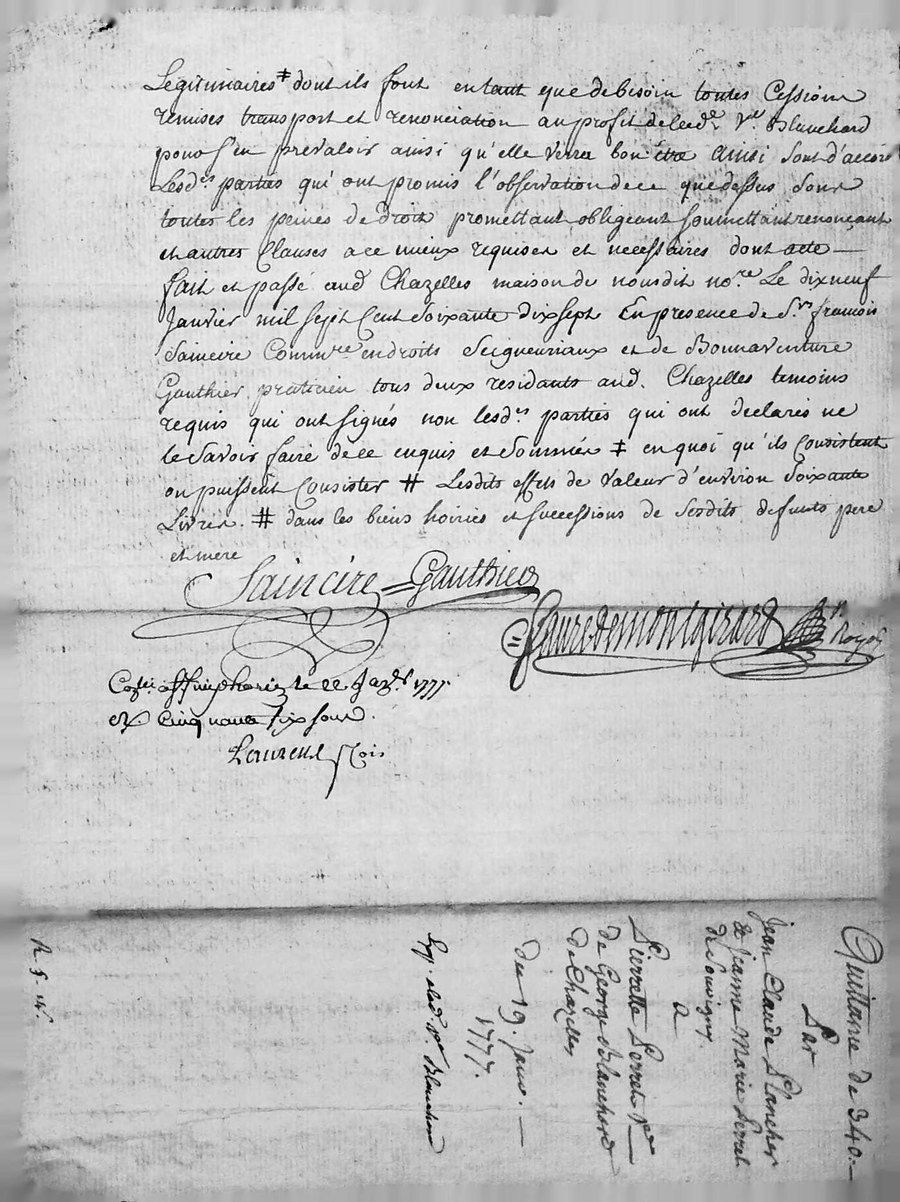 Légitimaires ⧧ dont ils font entant que debesoin toutes Cessions
remises transport et renonciation au profit de lad.e v.ve Blanchard
pour s'en prevaloir ainsi qu'elle verra bon être ainsi sont d'accord
Lesd.es parties qui ont promis l'observation de ce que dessus sous
toutes les peines de droit promettant obligeant soumettant renonçant
et autres Clauses a ce mieux requises et necessaires dont acte —
fait et passé aud Chazelles maison de nousdit no.re Le dixneuf
Janvier mil sept Cent soixante dix sept En presence de S.r francois
Saincire Comm.re en droits Seigneuriaux et de Bonnaventure
Gauthier praticien tous deux residants aud. Chazelles temoins
requis qui ont signés non lesd.es parties qui ont declarés ne
le savoir faire de ce enquis et sommés ⧧ en quoi qu'ils Consistent
ou puissent Consister # Lesdits effets de valeur d'environ soixante
Livres. # dans les biens hoiries et successions de sesdits defunts pere
et mere
Saincire = Gauthier
= fauredemontgirard n.re Royal
le 22 Janv.er 1777
cinquante six sous.
Laurent
Quittance de 340. —
Par
Jean Claude Plancher
& Jeanne Marie Perret
de Souvigny
A
Pierrette Perret v.ve
de George Blanchard
de Chazelles
du 19. Janv. —
1777.
Exp. a lad. v.ve Blanchard